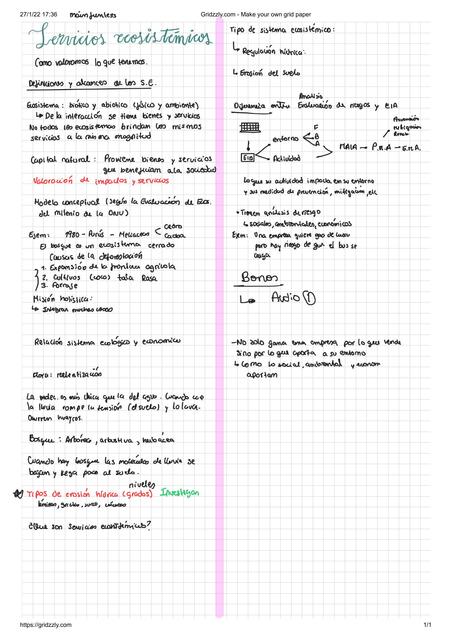 27/1/22 17:36
Gridzzly.com - Make your own grid paper
Servicios ecosistémicos
Como valoramos lo que tenemos.
Definiciones y alcances de los S.E.
Ecosistema: biótico y abiótico (físico y ambiente)
↳ De la interacción se tiene bienes y servicios
No todos los ecosistemas brindan los mismos
servicios a la misma magnitud
Capital natural: Proviene bienes y servicios
que benefician a la sociedad
Valoración de impactos y servicios
Modelo conceptual (según la Evaluación de Ecos.
del milenio de la ONU)
Ejem: 1980 - Perús - Maderas < Cedro
Caoba
El bosque es un ecosistema cerrado
Causas de la deforestación
1. Expansión de la frontera agrícola
2. Cultivos (coca) tala Rasa
3. Forraje
Misión holística:
↳ Integrar muchas cosas
Relación sistema ecológico y economico
Flora: ralentización
La molec. es más chica que la del agua. Cuando cae
la lluvia rompe la tensión (el suelo) y lo lava.
Ocurren huaycos.
Bosque: Arbórea, arbustiva, herbácea
Cuando hay bosque las moléculas de lluvia se
bajan y llega poco al suelo.
niveles
Tipos de erosión hídrica (grados) Investigar
¿Que son servicios ecosistémicos?
Tipo de sistema ecosistémico:
↳ Regulación hídrica:
↳ Erosión del suelo
Análisis
Diferencia entre Evaluación de riesgos y EIA
Entorno
F
B
A
Actividad
EIA
MAIA → P.M.A → E.M.A.
Prevención
mitigación
Lo que su actividad impacta en su entorno
y sus medidas de prevención, mitigación, etc
• Tienen análisis de riesgo
↳ sociales, ambientales, económicos
Ejem: Una empresa quiere gas de
pero hay riesgo de que el bus se
caiga
Bonos
↳ Audio ①
- No solo gana una empresa por lo que vende
sino por lo que aporta a su entorno
↳ Como lo social, ambiental y econom
aportan
https://gridzzly.com
1/1